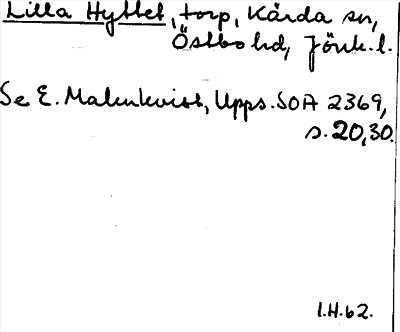 Lilla Hyttet, torp, Kärda sn,
Östbo hd, Jönk. l.
Se E. Malmkvist, Upps. SOA 2369,
s. 20, 30.
I.H. 62.